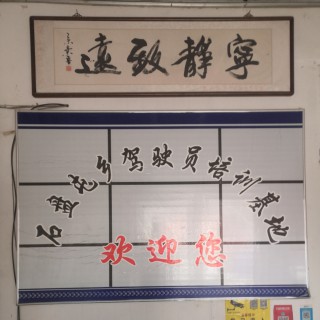 寧静致遠
石盘屯乡驾驶员培训基地
欢迎您